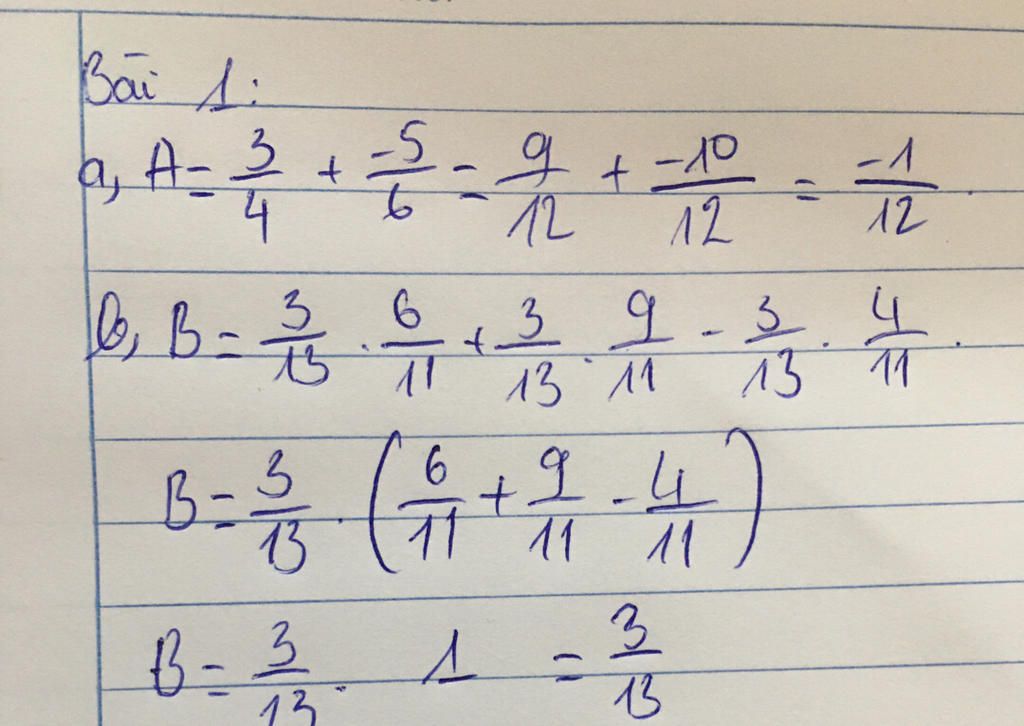 Bài 1:
a, A = 3/4 + -5/6 = 9/12 + -10/12 = -1/12.
b, B = 3/13 . 6/11 + 3/13 . 9/11 - 3/13 . 4/11.
B = 3/13 . (6/11 + 9/11 - 4/11)
B = 3/13 . 1 = 3/13